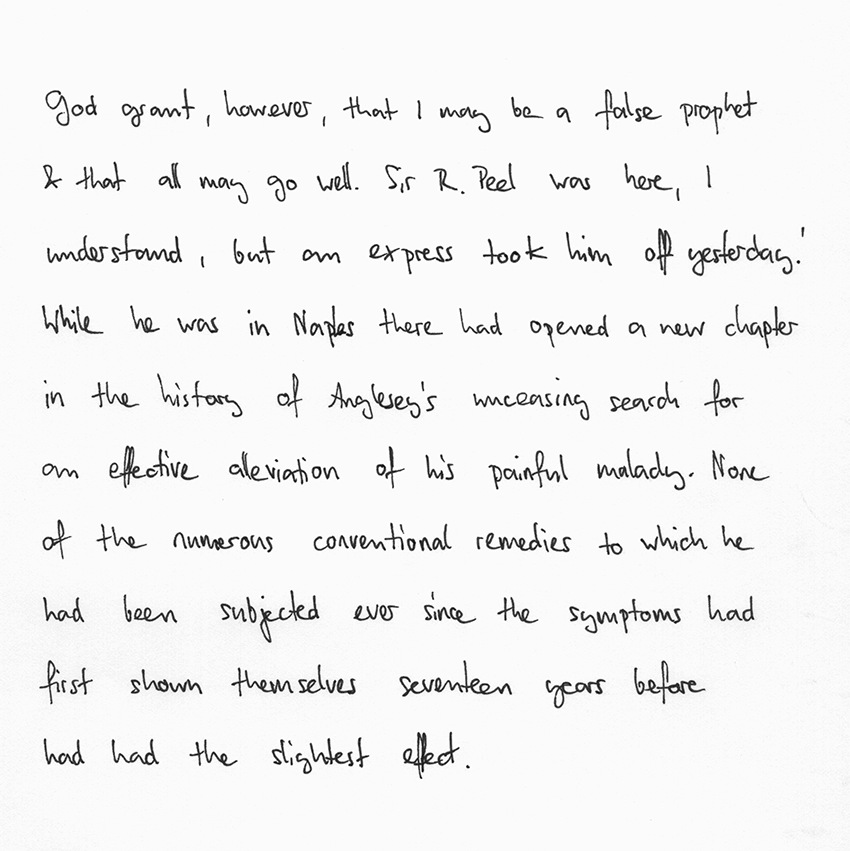 God grant, however, that I may be a false prophet
& that all may go well. Sir R. Peel was here, I
understand, but an express took him off yesterday.'
While he was in Naples there had opened a new chapter
in the history of Anglesey's unceasing search for
an effective alleviation of his painful malady. None
of the numerous conventional remedies to which he
had been subjected ever since the symptoms had
first shown themselves seventeen years before
had had the slightest effect.